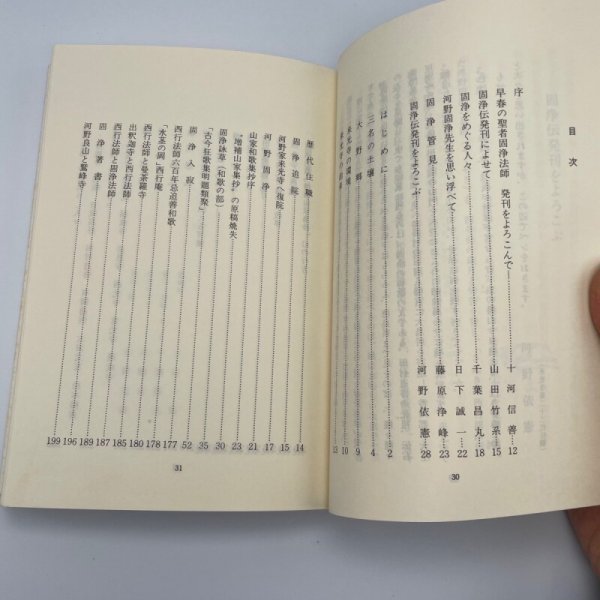 目次
序
早春の聖者固浄法師 発刊をよろこんで……十河信善 12
固浄伝発刊によせて……山田竹系 15
固浄をめぐる人々……千葉昌丸 18
河野固浄先生を思い浮べて……日下誠一 22
固浄管見……藤原浄峰 23
固浄伝発刊をよろこぶ……河野依憲 28
はじめに……2
三名の土壌……4
大野郷……9
30
歴代住職……14
固浄追院……15
河野家来光寺へ復院……17
河野固浄……21
山家和歌集抄序……23
“増補山家集抄”の原稿焼失
固浄詠草(和歌の部)……30
「古今狂歌集明題類聚」……35
固浄入寂……52
西行法師六百年忌追善和歌……177
「水茎の岡」西行庵……178
西行法師と曼荼羅寺……180
出釈迦寺と西行法師……185
西行法師と固浄法師……187
固浄著書……189
河野良山と鷲峰寺……196
199
31